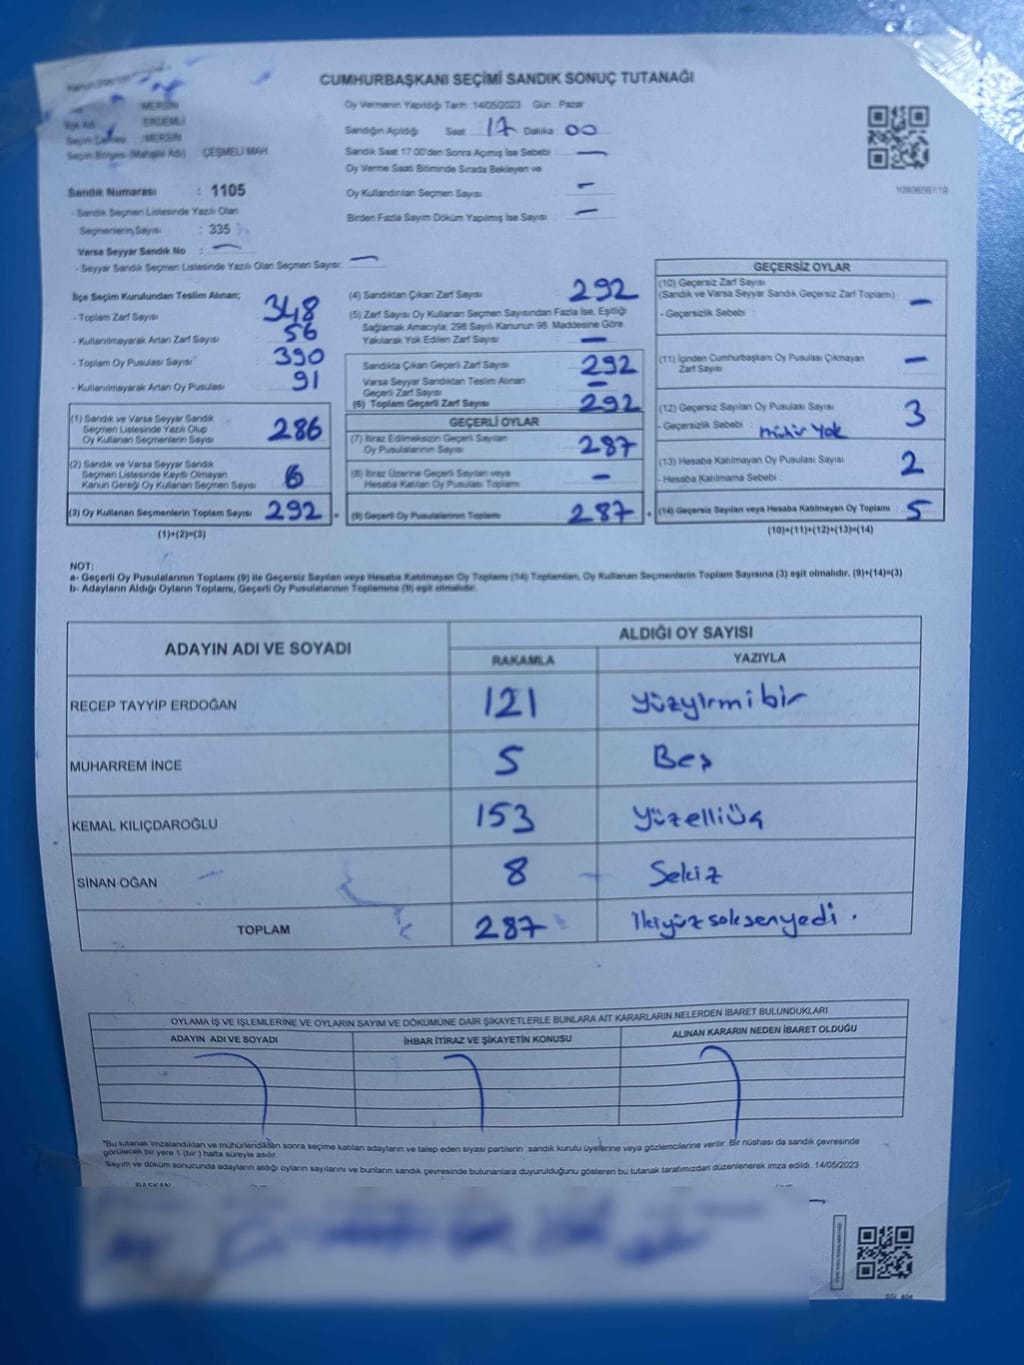 CUMHURBAŞKANI SEÇİMİ SANDIK SONUÇ TUTANAĞI
MERSİN
İlçe Adı : ERDEMLİ
Seçim Çevresi : MERSİN
Seçim Bölgesi (Mahalle Adı) : ÇEŞMELİ MAH.
Sandık Numarası : 1105
- Sandık Seçmen Listesinde Yazılı Olan
Seçmenlerin Sayısı : 335
Varsa Seyyar Sandık No : —
- Seyyar Sandık Seçmen Listesinde Yazılı Olan Seçmen Sayısı: —
Oy Vermenin Yapıldığı Tarih :14/05/2023 Gün : Pazar
Sandığın Açıldığı Saat : 17 Dakika : 00
Sandık Saat 17:00'den Sonra Açılmış İse Sebebi : —
Oy Verme Saati Bitiminde Sırada Bekleyen ve
Oy Kullandırılan Seçmen Sayısı : —
Birden Fazla Sayım Döküm Yapılmış İse Sayısı : —
İlçe Seçim Kurulundan Teslim Alınan;
- Toplam Zarf Sayısı 348
- Kullanılmayarak Artan Zarf Sayısı 56
- Toplam Oy Pusulası Sayısı 390
- Kullanılmayarak Artan Oy Pusulası 91
(1) Sandık ve Varsa Seyyar Sandık
Seçmen Listesinde Yazılı Olup
Oy Kullanan Seçmenlerin Sayısı 286
(2) Sandık ve Varsa Seyyar Sandık
Seçmen Listesinde Kayıtlı Olmayan
Kanun Gereği Oy Kullanan Seçmen Sayısı 6
(3) Oy Kullanan Seçmenlerin Toplam Sayısı 292 =
(1)+(2)=(3)
(4) Sandıktan Çıkan Zarf Sayısı 292
(5) Zarf Sayısı Oy Kullanan Seçmen Sayısından Fazla İse, Eşitliği
Sağlamak Amacıyla; 298 Sayılı Kanunun 98. Maddesine Göre
Yakılarak Yok Edilen Zarf Sayısı —
Sandıkta Çıkan Geçerli Zarf Sayısı 292
Varsa Seyyar Sandıktan Teslim Alınan
Geçerli Zarf Sayısı —
(6) Toplam Geçerli Zarf Sayısı 292
GEÇERLİ OYLAR
(7) İtiraz Edilmeksizin Geçerli Sayılan
Oy Pusulalarının Sayısı 287
(8) İtiraz Üzerine Geçerli Sayılan veya
Hesaba Katılan Oy Pusulası Toplamı —
(9) Geçerli Oy Pusulalarının Toplamı 287 +
GEÇERSİZ OYLAR
(10) Geçersiz Zarf Sayısı
(Sandık ve Varsa Seyyar Sandık Geçersiz Zarf Toplamı) —
- Geçersizlik Sebebi :
(11) İçinden Cumhurbaşkanı Oy Pusulası Çıkmayan
Zarf Sayısı —
(12) Geçersiz Sayılan Oy Pusulası Sayısı 3
- Geçersizlik Sebebi : mühür yok
(13) Hesaba Katılmayan Oy Pusulası Sayısı 2
- Hesaba Katılmama Sebebi :
(14) Geçersiz Sayılan veya Hesaba Katılmayan Oy Toplamı 5
(10)+(11)+(12)+(13)=(14)
NOT:
a- Geçerli Oy Pusulalarının Toplamı (9) ile Geçersiz Sayılan veya Hesaba Katılmayan Oy Toplamı (14) Toplamları, Oy Kullanan Seçmenlerin Toplam Sayısına (3) eşit olmalıdır. (9)+(14)=(3)
b- Adayların Aldığı Oyların Toplamı, Geçerli Oy Pusulalarının Toplamına (9) eşit olmalıdır.
ADAYIN ADI VE SOYADI
ALDIĞI OY SAYISI
RAKAMLA YAZIYLA
RECEP TAYYİP ERDOĞAN 121 yüzyirmibir
MUHARREM İNCE 5 Beş
KEMAL KILIÇDAROĞLU 153 yüzelliüç
SİNAN OĞAN 8 Sekiz
TOPLAM 287 ikiyüzseksenyedi.
OYLAMA İŞ VE İŞLEMLERİNE VE OYLARIN SAYIM VE DÖKÜMÜNE DAİR ŞİKAYETLERLE BUNLARA AİT KARARLARIN NELERDEN İBARET BULUNDUKLARI
ADAYIN ADI VE SOYADI İHBAR İTİRAZ VE ŞİKAYETİN KONUSU ALINAN KARARIN NEDEN İBARET OLDUĞU
*Bu tutanak imzalandıktan ve mühürlendikten sonra seçime katılan adayların ve talep eden siyasi partilerin sandık kurulu üyelerine veya gözlemcilerine verilir. Bir nüshası da sandık çevresinde
görülecek bir yere 1 (bir ) hafta süreyle asılır.
Sayım ve döküm sonucunda adayların aldığı oyların sayılarını ve bunların sandık çevresinde bulunanlara duyurulduğunu gösteren bu tutanak tarafımızdan düzenlenerek imza edildi. 14/05/2023
BAŞKAN